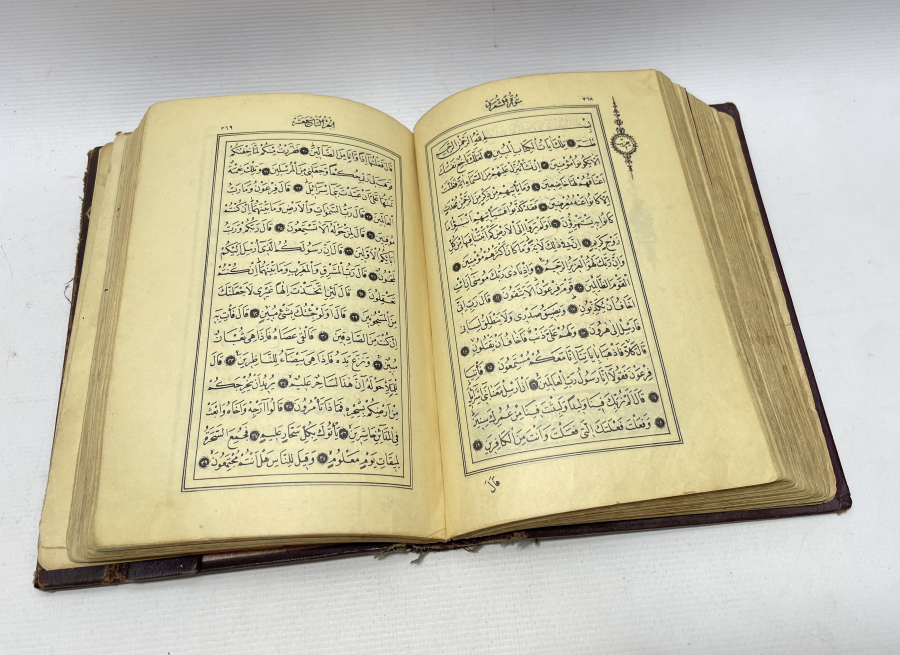 ٣٦٨ سُورَةُ الشُّعَرَاءِ
بِسْمِ اللّٰهِ الرَّحْمٰنِ الرَّحِيمِ
طٰسٓمٓ ١ تِلْكَ اٰيَاتُ الْكِتَابِ الْمُبِينِ ٢ لَعَلَّكَ بَاخِعٌ نَفْسَكَ
اَلَّا يَكُونُوا مُؤْمِنِينَ ٣ اِنْ نَشَأْ نُنَزِّلْ عَلَيْهِمْ مِنَ السَّمَاءِ اٰيَةً فَظَلَّتْ
اَعْنَاقُهُمْ لَهَا خَاضِعِينَ ٤ وَمَا يَأْتِيهِمْ مِنْ ذِكْرٍ مِنَ الرَّحْمٰنِ مُحْدَثٍ
اِلَّا كَانُوا عَنْهُ مُعْرِضِينَ ٥ فَقَدْ كَذَّبُوا فَسَيَأْتِيهِمْ اَنْبٰٓؤُا مَا
كَانُوا بِهِ يَسْتَهْزِؤُنَ ٦ اَوَلَمْ يَرَوْا اِلَى الْاَرْضِ كَمْ اَنْبَتْنَا فِيهَا مِنْ كُلِّ
زَوْجٍ كَرِيمٍ ٧ اِنَّ فِي ذٰلِكَ لَاٰيَةً وَمَا كَانَ اَكْثَرُهُمْ مُؤْمِنِينَ ٨
وَاِنَّ رَبَّكَ لَهُوَ الْعَزِيزُ الرَّحِيمُ ٩ وَاِذْ نَادٰى رَبُّكَ مُوسٰى اَنِ ائْتِ
الْقَوْمَ الظَّالِمِينَ ١٠ قَوْمَ فِرْعَوْنَ اَلَا يَتَّقُونَ ١١ قَالَ رَبِّ اِنِّي
اَخَافُ اَنْ يُكَذِّبُونِ ١٢ وَيَضِيقُ صَدْرِي وَلَا يَنْطَلِقُ لِسَانِي
فَاَرْسِلْ اِلٰى هٰرُونَ ١٣ وَلَهُمْ عَلَيَّ ذَنْبٌ فَاَخَافُ اَنْ يَقْتُلُونِ ١٤
قَالَ كَلَّا فَاذْهَبَا بِاٰيَاتِنَا اِنَّا مَعَكُمْ مُسْتَمِعُونَ ١٥ فَأْتِيَا
فِرْعَوْنَ فَقُولَا اِنَّا رَسُولُ رَبِّ الْعَالَمِينَ ١٦ اَنْ اَرْسِلْ مَعَنَا بَنِي اِسْرَائِيلَ ١٧
قَالَ اَلَمْ نُرَبِّكَ فِينَا وَلِيدًا وَلَبِثْتَ فِينَا مِنْ عُمُرِكَ سِنِينَ
وَفَعَلْتَ فَعْلَتَكَ الَّتِي فَعَلْتَ وَاَنْتَ مِنَ الْكَافِرِينَ
قَالَ
٣٦٩
قَالَ فَعَلْتُهَا اِذًا وَاَنَا مِنَ الضَّالِّينَ ٢٠ فَفَرَرْتُ مِنْكُمْ لَمَّا خِفْتُكُمْ
فَوَهَبَ لِي رَبِّي حُكْمًا وَجَعَلَنِي مِنَ الْمُرْسَلِينَ ٢١ وَتِلْكَ نِعْمَةٌ
تَمُنُّهَا عَلَيَّ اَنْ عَبَّدْتَ بَنِي اِسْرَائِيلَ ٢٢ قَالَ فِرْعَوْنُ وَمَا رَبُّ
الْعَالَمِينَ ٢٣ قَالَ رَبُّ السَّمٰوَاتِ وَالْاَرْضِ وَمَا بَيْنَهُمَا اِنْ كُنْتُمْ
مُوقِنِينَ ٢٤ قَالَ لِمَنْ حَوْلَهُ اَلَا تَسْتَمِعُونَ ٢٥ قَالَ رَبُّكُمْ وَرَبُّ
اٰبَائِكُمُ الْاَوَّلِينَ ٢٦ قَالَ اِنَّ رَسُولَكُمُ الَّذِي اُرْسِلَ اِلَيْكُمْ
لَمَجْنُونٌ ٢٧ قَالَ رَبُّ الْمَشْرِقِ وَالْمَغْرِبِ وَمَا بَيْنَهُمَا اِنْ كُنْتُمْ
تَعْقِلُونَ ٢٨ قَالَ لَئِنِ اتَّخَذْتَ اِلٰهًا غَيْرِي لَاَجْعَلَنَّكَ
مِنَ الْمَسْجُونِينَ ٢٩ قَالَ اَوَلَوْ جِئْتُكَ بِشَيْءٍ مُبِينٍ ٣٠ قَالَ فَأْتِ بِهِ
اِنْ كُنْتَ مِنَ الصَّادِقِينَ ٣١ فَاَلْقٰى عَصَاهُ فَاِذَا هِيَ ثُعْبَانٌ
مُبِينٌ ٣٢ وَنَزَعَ يَدَهُ فَاِذَا هِيَ بَيْضَاءُ لِلنَّاظِرِينَ ٣٣ قَالَ
لِلْمَلَاِ حَوْلَهُ اِنَّ هٰذَا لَسَاحِرٌ عَلِيمٌ ٣٤ يُرِيدُ اَنْ يُخْرِجَكُمْ
مِنْ اَرْضِكُمْ بِسِحْرِهِ فَمَاذَا تَأْمُرُونَ ٣٥ قَالُوا اَرْجِهْ وَاَخَاهُ وَابْعَثْ
فِي الْمَدَائِنِ حَاشِرِينَ ٣٦ يَأْتُوكَ بِكُلِّ سَحَّارٍ عَلِيمٍ ٣٧ فَجُمِعَ السَّحَرَةُ
لِمِيقَاتِ يَوْمٍ مَعْلُومٍ ٣٨ وَقِيلَ لِلنَّاسِ هَلْ اَنْتُمْ مُجْتَمِعُونَ ٣٩